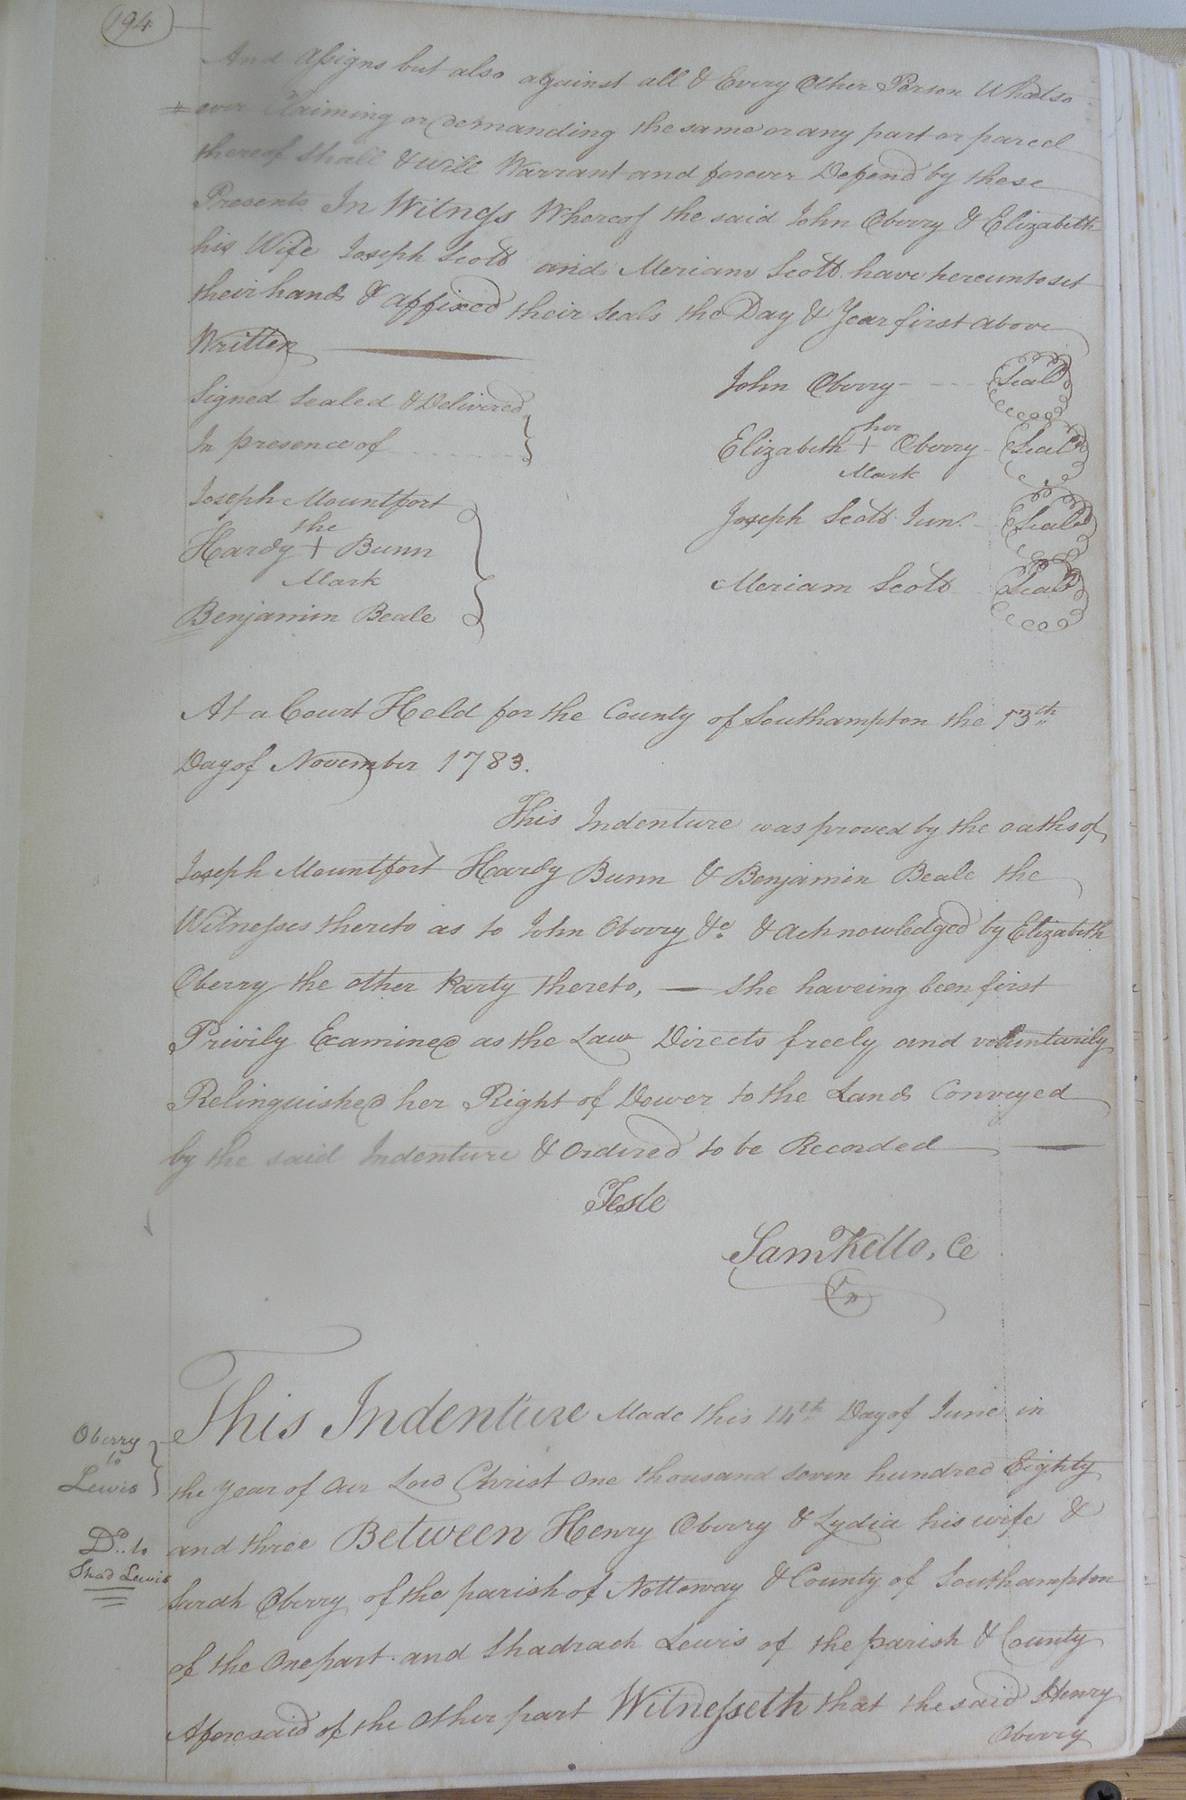 194
And Assigns but also against all & Every Other Person Whatso
ever Claiming or demanding the same or any part or parcel
thereof shall & will Warrant and forever Defend by these
Presents In Witness Whereof the said John Oberry & Elizabeth
his Wife Joseph Scott and Meriam Scott have hereunto set
their hands & affixed their seals the Day & Year first above
Written
Signed Sealed & Delivered
In presence of
John Oberry Seal
her
Elizabeth + Oberry Seal
Mark
Joseph Scott Jun. Seal
Meriam Scott Seal
Joseph Mountfort
the
Hardy + Bunn
Mark
Benjamin Beale
At a Court Held for the County of Southampton the 13th
Day of November 1783.
This Indenture was proved by the oaths of
Joseph Mountfort Hardy Bunn & Benjamin Beale the
Witnesses thereto as to John Oberry &c. & acknowledged by Elizabeth
Oberry the other Party thereto, — she haveing been first
Privily Examined as the Law Directs freely and voluntarily
Relinquished her Right of Dower to the Lands Conveyed
by the said Indenture & Ordered to be Recorded
Teste
Sam Kello, Ce
Oberry
to
Lewis
Do. to
Shad Lewis
This Indenture Made this 14th Day of June in
the year of Our Lord Christ One thousand seven hundred Eighty
and three Between Henry Oberry & Lydia his wife &
Sarah Oberry of the parish of Nottoway & County of Southampton
of the One part and Shadrach Lewis of the parish & County
Aforesaid of the Other part Witnesseth that the said Henry
Oberry